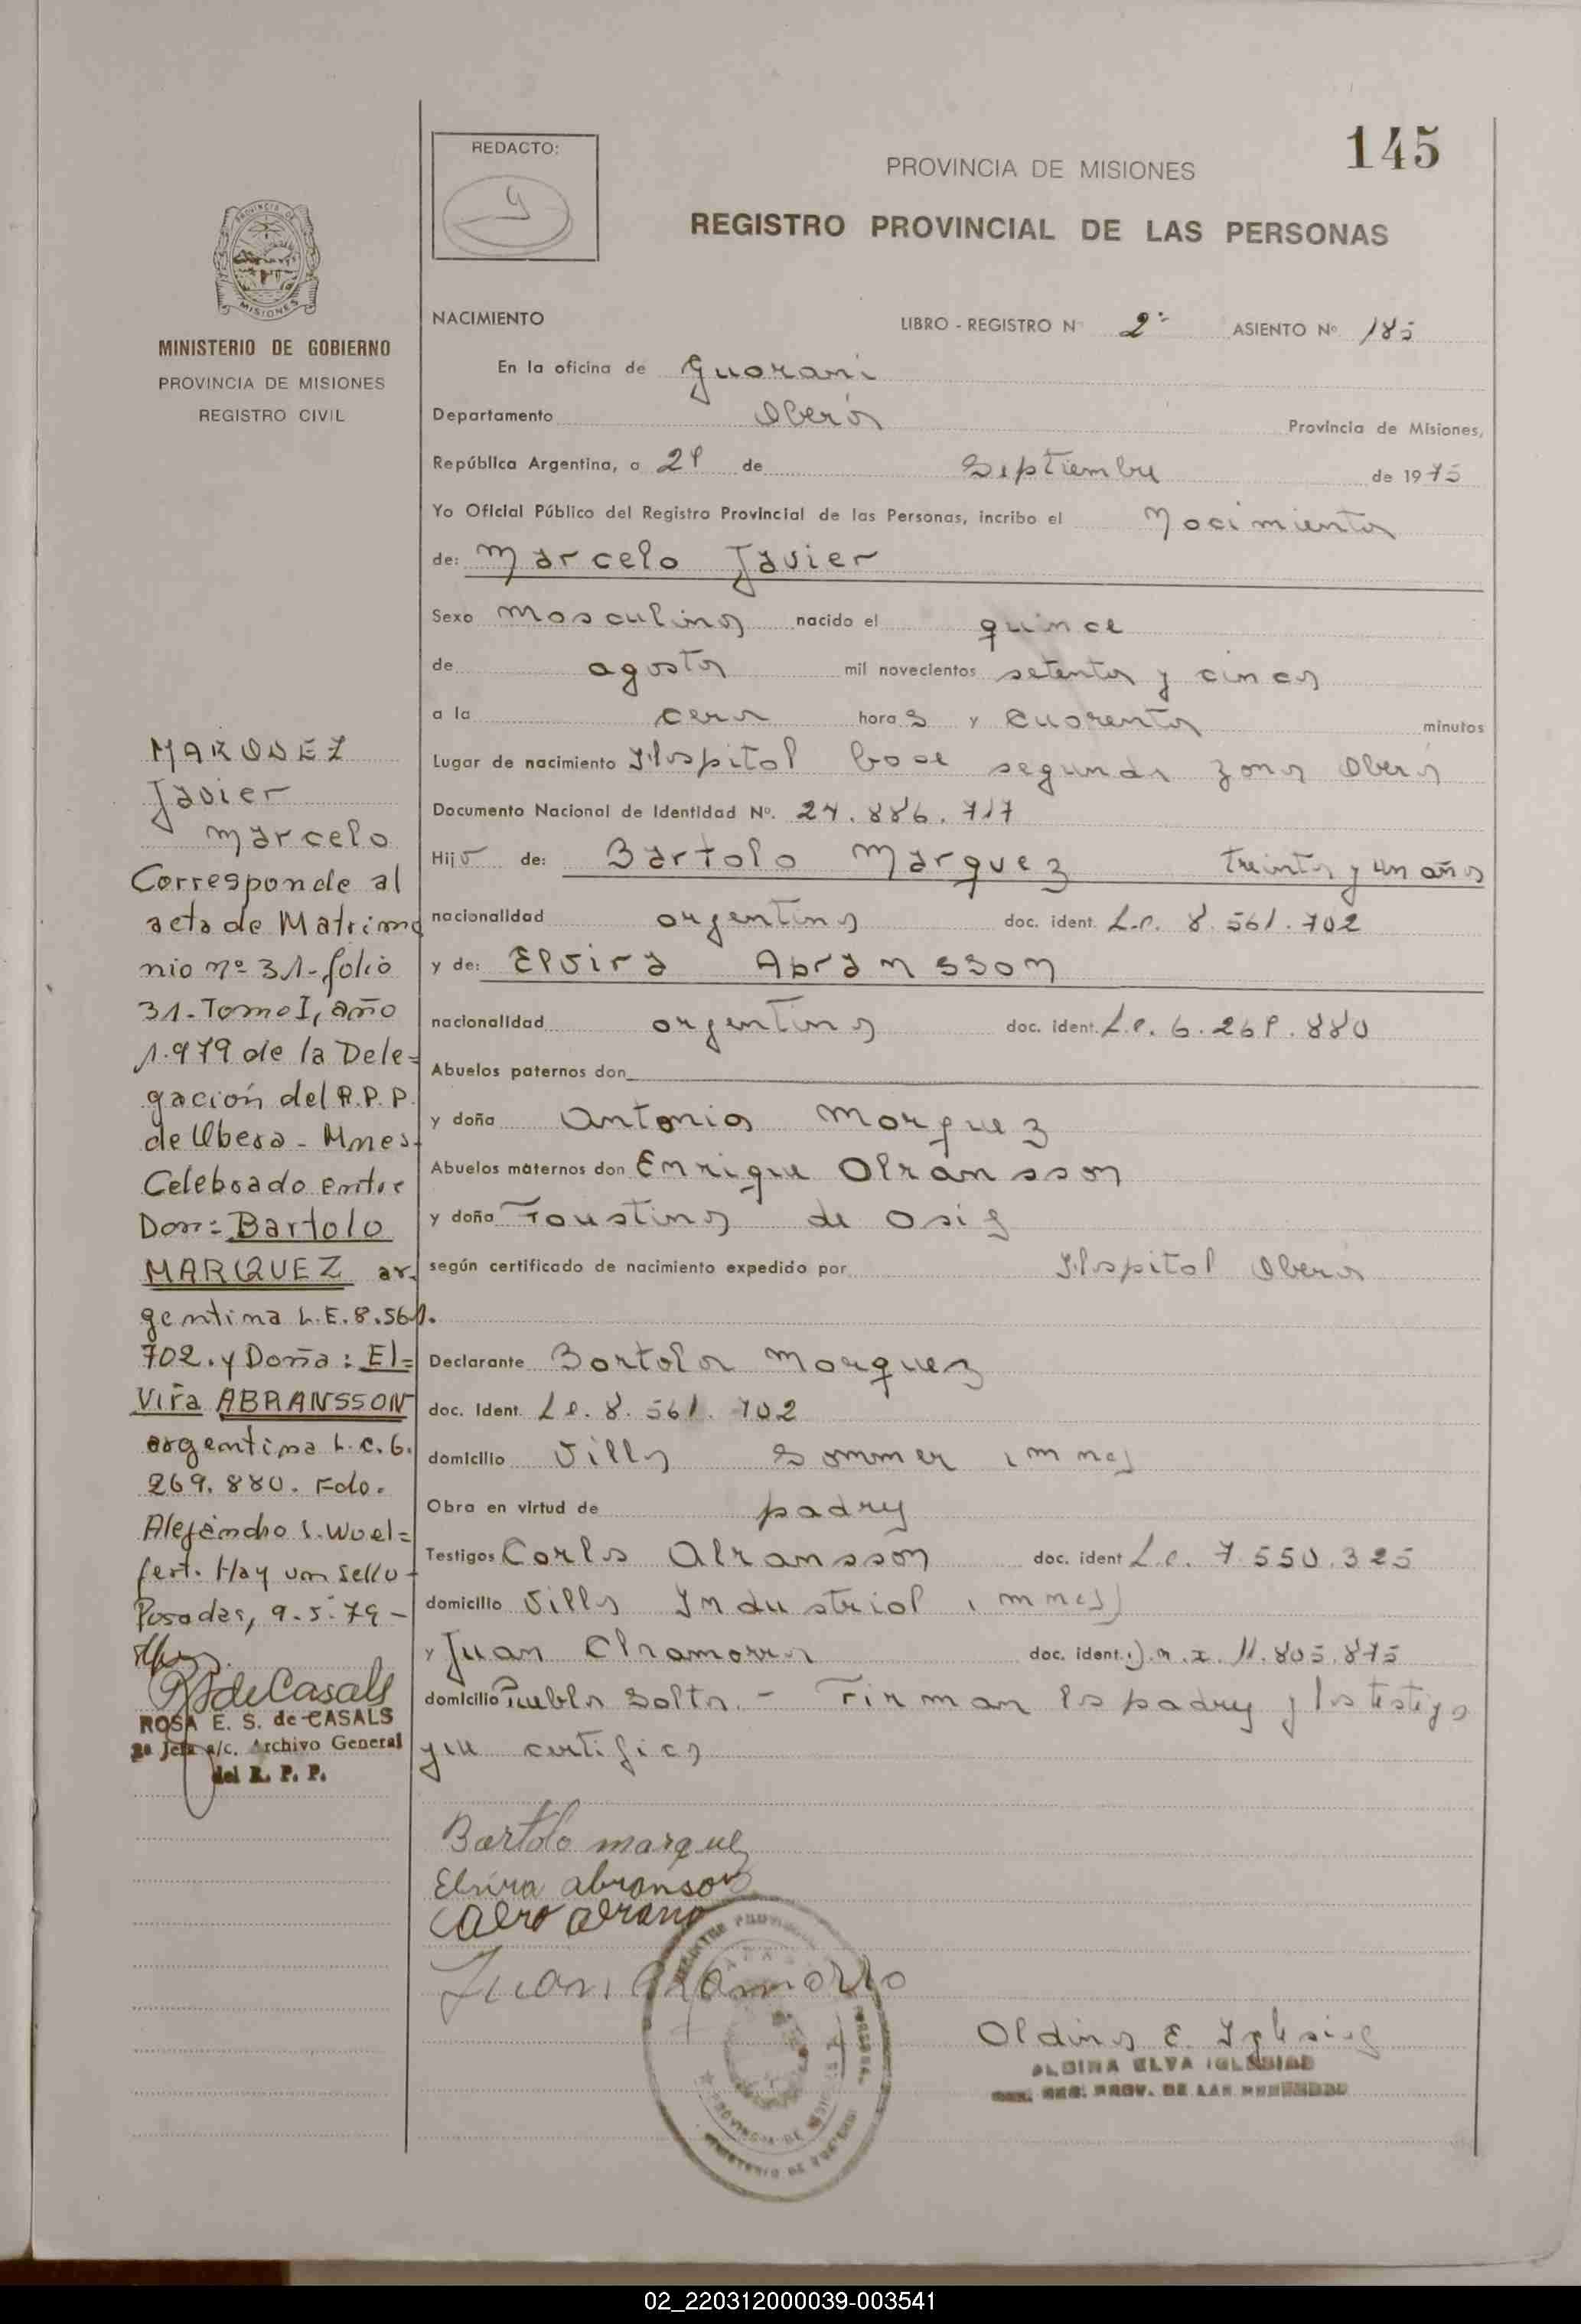 145
REDACTO:
PROVINCIA DE MISIONES
REGISTRO PROVINCIAL DE LAS PERSONAS
MISIONES
MINISTERIO DE GOBIERNO
PROVINCIA DE MISIONES
REGISTRO CIVIL
NACIMIENTO LIBRO - REGISTRO Nº 2º ASIENTO Nº 185
En la oficina de Guarani
Departamento Oberá Provincia de Misiones,
República Argentina, a 29 de Septiembre de 1975
Yo Oficial Público del Registro Provincial de las Personas, incribo el Nacimiento
de: Marcelo Javier
Sexo Masculino nacido el quince
de agosto mil novecientos setenta y cinco
a la cero horas y cuarenta minutos
Lugar de nacimiento Hospital base segunda zona Oberá
Documento Nacional de Identidad Nº. 24.886.717
Hijo de: Bartolo Marquez treinta y un años
nacionalidad argentino doc. ident. L.e. 8.561.702
y de: Elvira Abransson
nacionalidad argentina doc. ident. L.c. 6.269.880
Abuelos paternos don
y doña Antonia Marquez
Abuelos maternos don Enrique Abransson
y doña Faustina de
según certificado de nacimiento expedido por Hospital Oberá
Declarante Bartolo Marquez
doc. Ident. L.e. 8.561.702
domicilio Villa Sommer (mnes)
Obra en virtud de padre
Testigos Carlos Abransson doc. ident L.e. 7.550.325
domicilio Villa Industrial (mnes)
y Juan Chamorro doc. ident. D.n.I. 11.805.875
domicilio Pueblo Salto.- Firman los padres y los testigos
que certifico
Bartolo marquez
Elvira abranson
Juan Chamorro
Aldina E. Iglesias
ALDINA ELVA IGLESIAS
REG. PROV. DE LAS PERSONAS
MARQUEZ
Javier
Marcelo
Corresponde al
acta de Matrimo
nio nº 31-folio
31-Tomo I, año
1.979 de la Dele=
gación del R.P.P.
de Obera - Mnes.
Celebrado entre
Don: Bartolo
MARQUEZ ar-
gentina L.E.8.561.
702. y Doña: El=
vira ABRANSSON
argentina L.C.6.
269.880. Fdo.
Alejandro S. Woel=
fert. Hay un sello-
Posadas, 9-5-79-
R S de Casals
ROSA E. S. de CASALS
2ª Jefa a/c. Archivo General
del R. P. P.
02_220312000039-003541